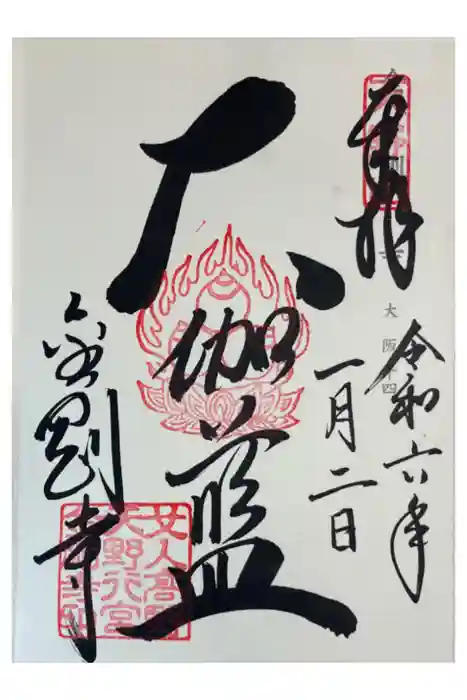 奉拝
大阪十四
令和六年
一月二日
大伽藍
金剛寺
女人高野
天野行宮